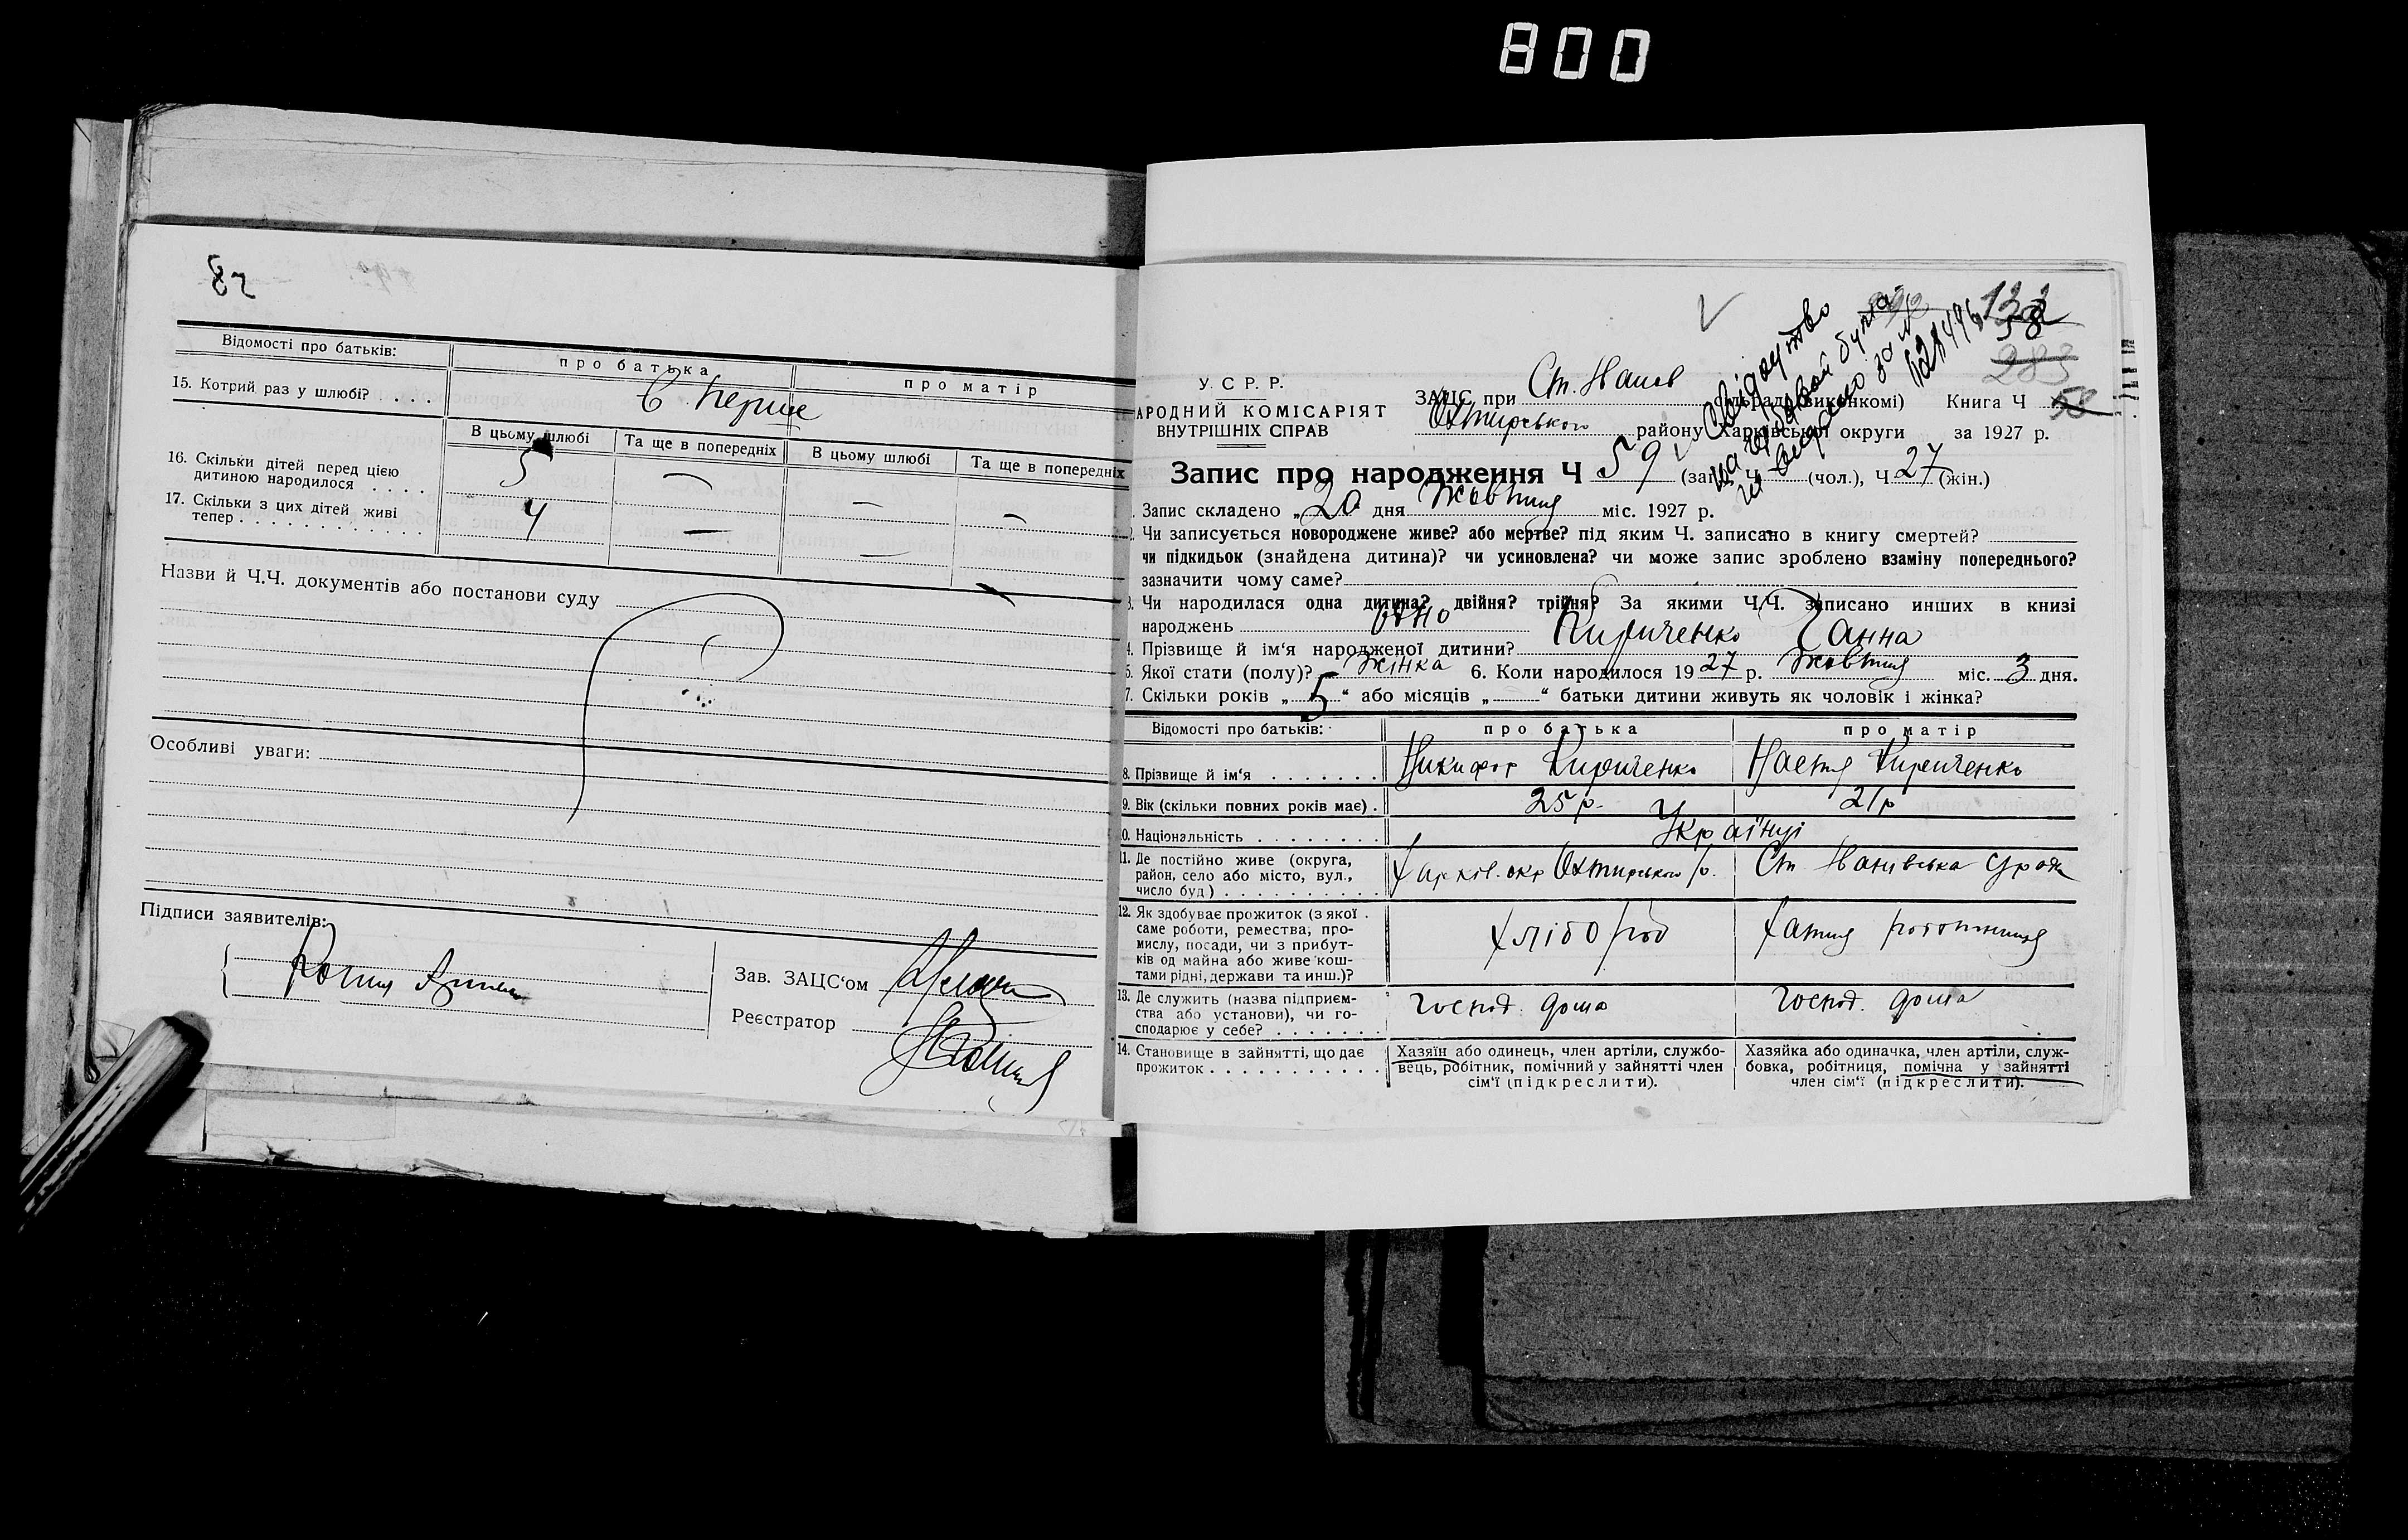 800
Відомості про батьків:
про батька
про матір
15. Котрий раз у шлюбі? . . .
В перше
В цьому шлюбі
Та ще в попередніх
В цьому шлюбі
Та ще в попередніх
16. Скільки дітей перед цією
дитиною народилося . . . .
5 — — —
17. Скільки з цих дітей живі
тепер . . . . . . . . . . . .
4 — — —
Назви й Ч.Ч. документів або постанови суду
Особливі уваги:
Підписи заявителів:
Зав. ЗАЦС‘ом
Реєстратор
132
58
283
У. С. Р. Р.
АРОДНИЙ КОМІСАРІЯТ
ВНУТРІШНІХ СПРАВ
ЗАЦС при Ст. Іванов (сільраді, виконкомі) Книга Ч 58
Охтирського району Харківської округи за 1927 р.
Свідоцтво
Запис про народження Ч 59 (заг.), Ч (чол.), Ч 27 (жін.)
Запис складено „20 дня Жовтня міс. 1927 р.
2. Чи записується новороджене живе? або мертве? під яким Ч. записано в книгу смертей?
чи підкидьок (знайдена дитина)? чи усиновлена? чи може запис зроблено взаміну попереднього?
зазначити чому саме?
3. Чи народилася одна дитина? двійня? трійня? За якими Ч.Ч. записано инших в книзі
народжень одно
4. Прізвище й ім‘я народженої дитини? Кириченко Ганна
5. Якої стати (полу)? жінка 6. Коли народилося 1927 р. Жовтня міс. 3 дня.
7. Скільки років „5“ або місяців „ “ батьки дитини живуть як чоловік і жінка?
Відомості про батьків:
про батька
про матір
8. Прізвище й ім‘я . . . . . . .
Никифор Кириченко
Настя Кириченко
9. Вік (скільки повних років має) .
25 р.
21 р
10. Національність . . . . . . . .
Українці
11. Де постійно живе (округа,
район, село або місто, вул.,
число буд) . . . . . . . . . .
Харків. окр Охтирського р.
Ст Іванівська
12. Як здобуває прожиток (з якої
саме роботи, ремества, про-
мислу, посади, чи з прибут-
ків од майна або живе кош-
тами рідні, держави та инш.)?
хлібороб
хатня робітниця
13. Де служить (назва підприєм-
ства або установи), чи го-
сподарює у себе? . . . . . . .
господ. дома
господ. дома
14. Становище в зайнятті, що дає
прожиток . . . . . . . . . . .
Хазяїн або одинець, член артіли, службо-
вець, робітник, помічний у зайнятті член
сім‘ї (підкреслити).
Хазяйка або одиначка, член артіли, служ-
бовка, робітниця, помічна у зайнятті
член сім‘ї (підкреслити).